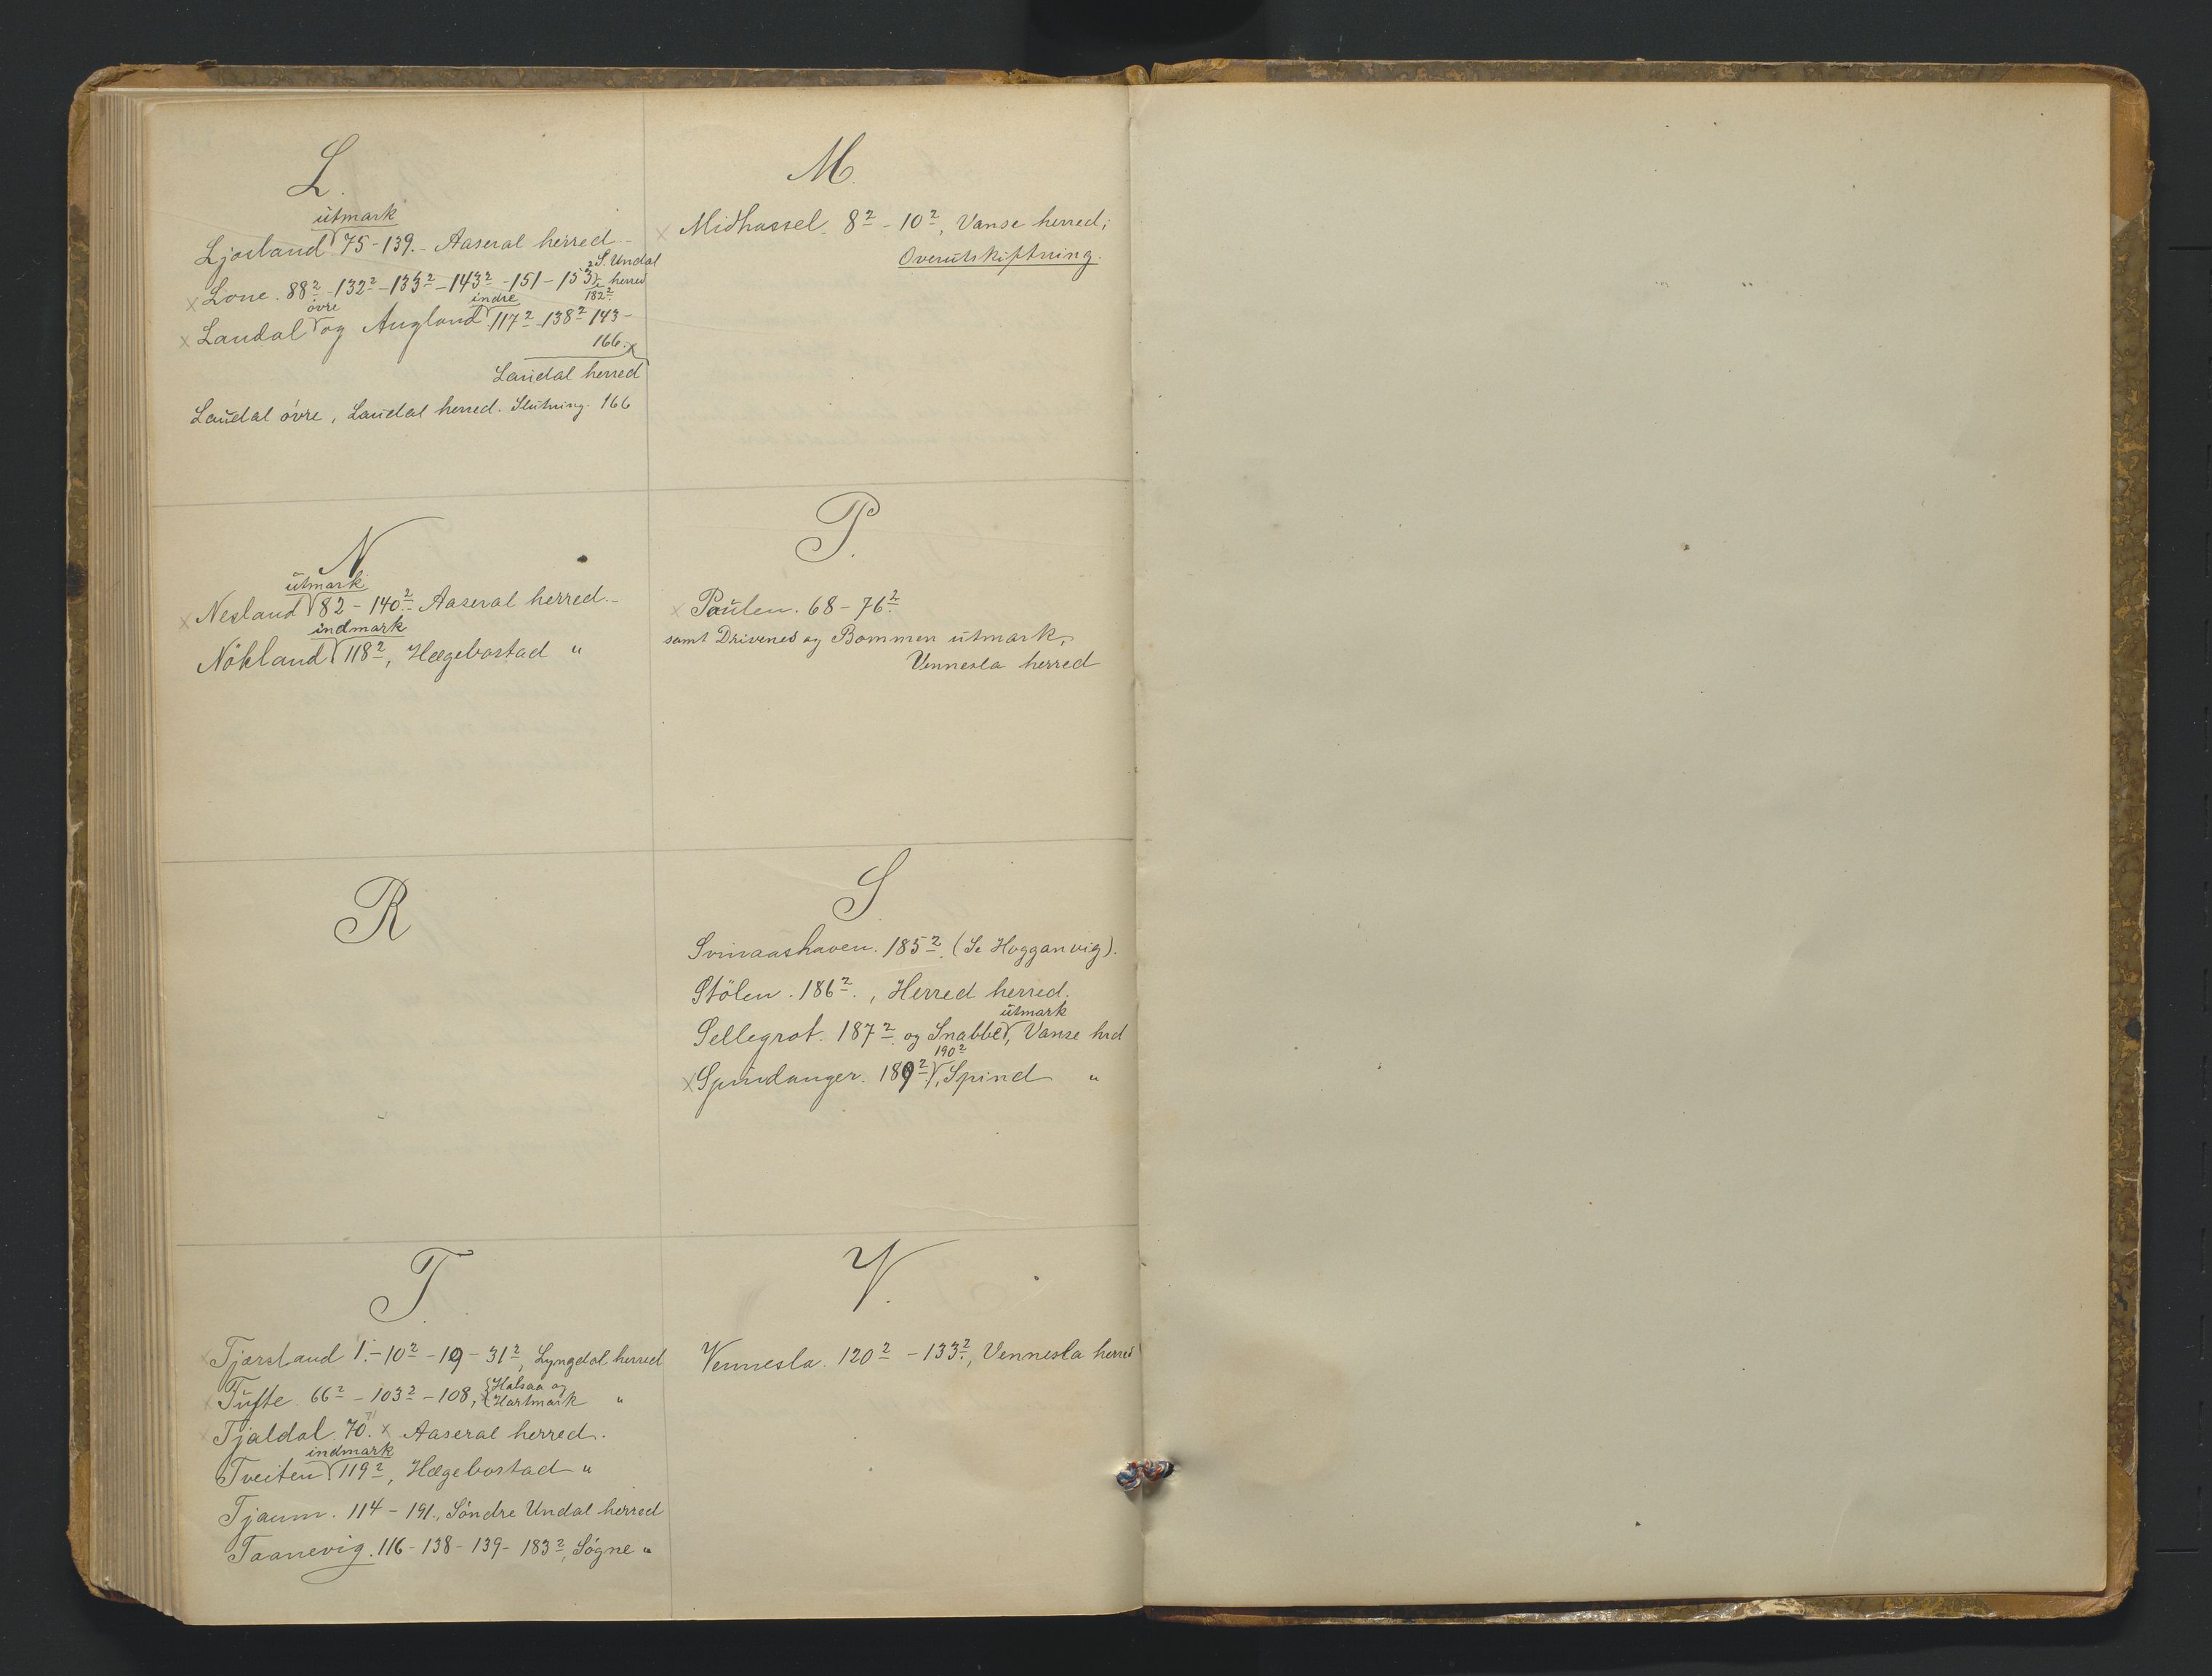 L.
utmark
Ljosland 75 - 139. - Aaseral herred. -
S. Undal
x Lone. 88² - 132² - 135² - 143² - 151 - 153² herred
182²
øvre indre
x Laudal og Augland 117² - 138² 143 -
166. x
Laudal herred
Laudal øvre, Laudal herred. Slutning. 166
M.
x Midhassel. 8² - 10², Vanse herred;
Overutskiftning.
N
utmark
x Nesland 82 - 140². Aaseral herred. -
indmark
Nökland 118², Hægebostad "
P.
x Paulen. 68 - 76²
samt Drivenes og Bommen utmark,
Vennesla herred
R
S
Svinaashaven. 185². (Se Hogganvig).
Stölen. 186²., Herred herred.
utmark
Sellegrot. 187² og Snabbe, Vanse hrd
190²
x Spindanger. 189², Spind "
T.
x Tjærsland 1. - 10² - 19 - 31², Lyngdal herred
x Tufte. 66² - 103² - 108, {Halsaa og
Hartmark "
x Tjaldal. 70. x Aaseral herred.
indmark
Tveiten 119², Hægebostad "
Tjaum. 114 - 191., Söndre Undal herred
Taanevig. 116 - 138 - 139 - 183², Sögne "
V.
Vennesla. 120² - 133², Vennesla herred